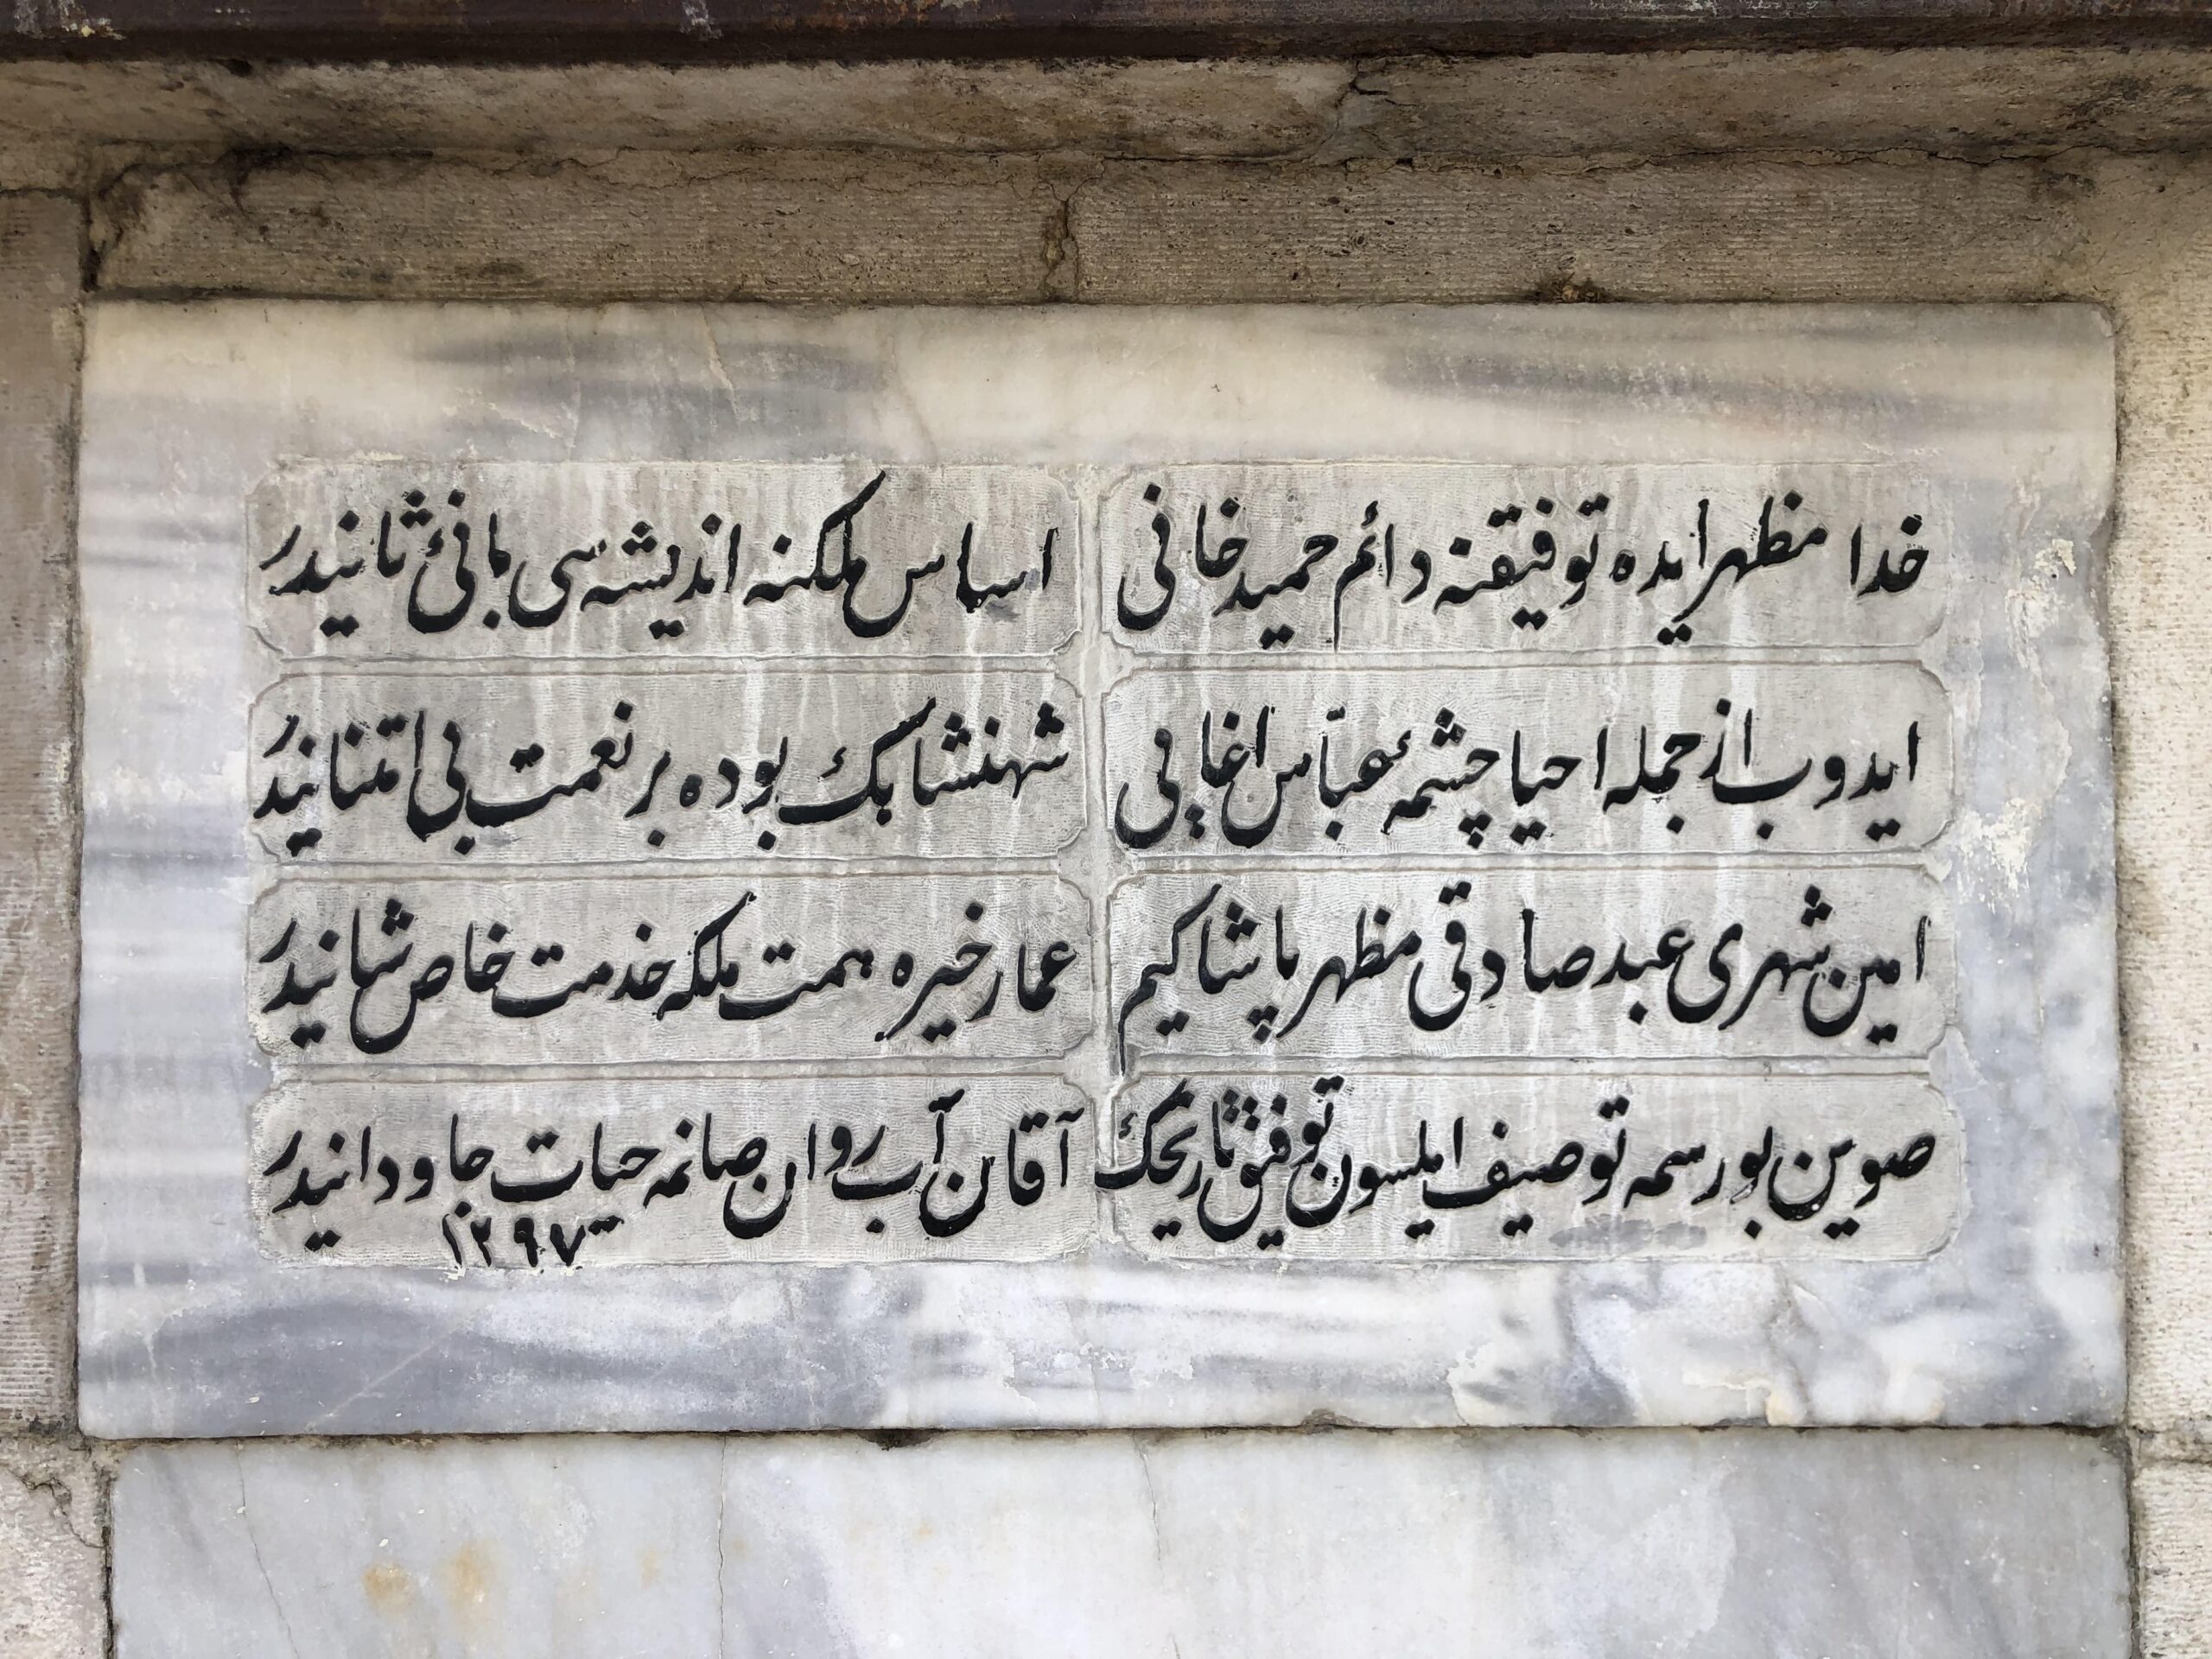 خدا مظهر ایده توفیقنه دائم حمید خانی
اساس ملکنه اندیشه‌سی بانئ ثانیدر
ایدوب از جمله احیا چشمهٔ عبّاس اغایی
شهنشاهك بوده بر نعمت بی امتنانیدر
امین شهری عبد صادقی مظهر پاشا کیم
عمار خیره همت ملکه خدمت خاص شانیدر
صوین بو رسمه توصیف ایلسون توفیق تاریحك
آقان آب روان صانمه حیات جاودانیدر
١٢٩٧